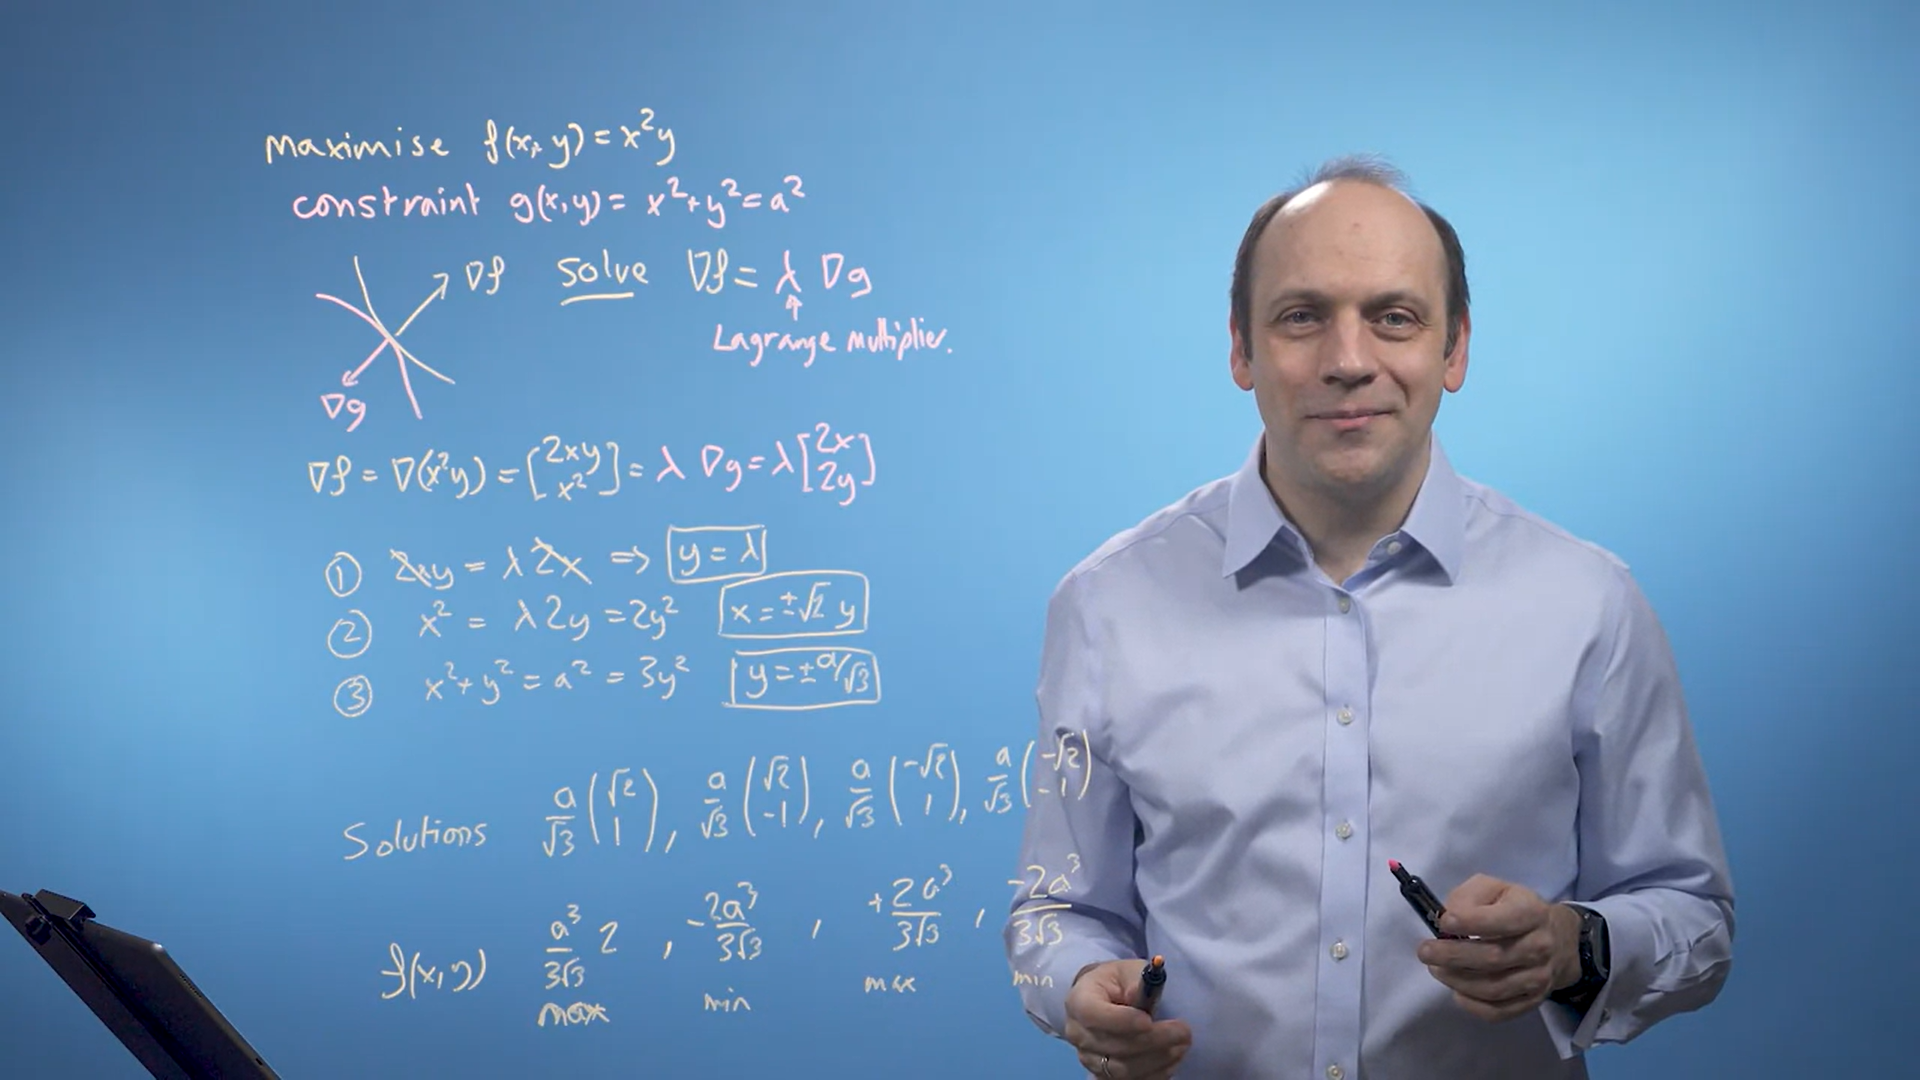 maximise f(x, y) = x²y
constraint g(x, y) = x² + y² = a²
∇f
solve ∇f = λ ∇g
Lagrange multiplier.
∇g
∇f = ∇(x²y) = [2xy x²] = λ ∇g = λ [2x 2y]
① 2xy = λ 2x ⇒ y = λ
② x² = λ 2y = 2y² x = ±√2 y
③ x² + y² = a² = 3y² y = ±a/√3
Solutions a/√3 (√2 1), a/√3 (√2 -1), a/√3 (-√2 1), a/√3 (-√2 -1)
f(x, y) a³/3√3 2, -2a³/3√3, +2a³/3√3, -2a³/3√3
max min max min